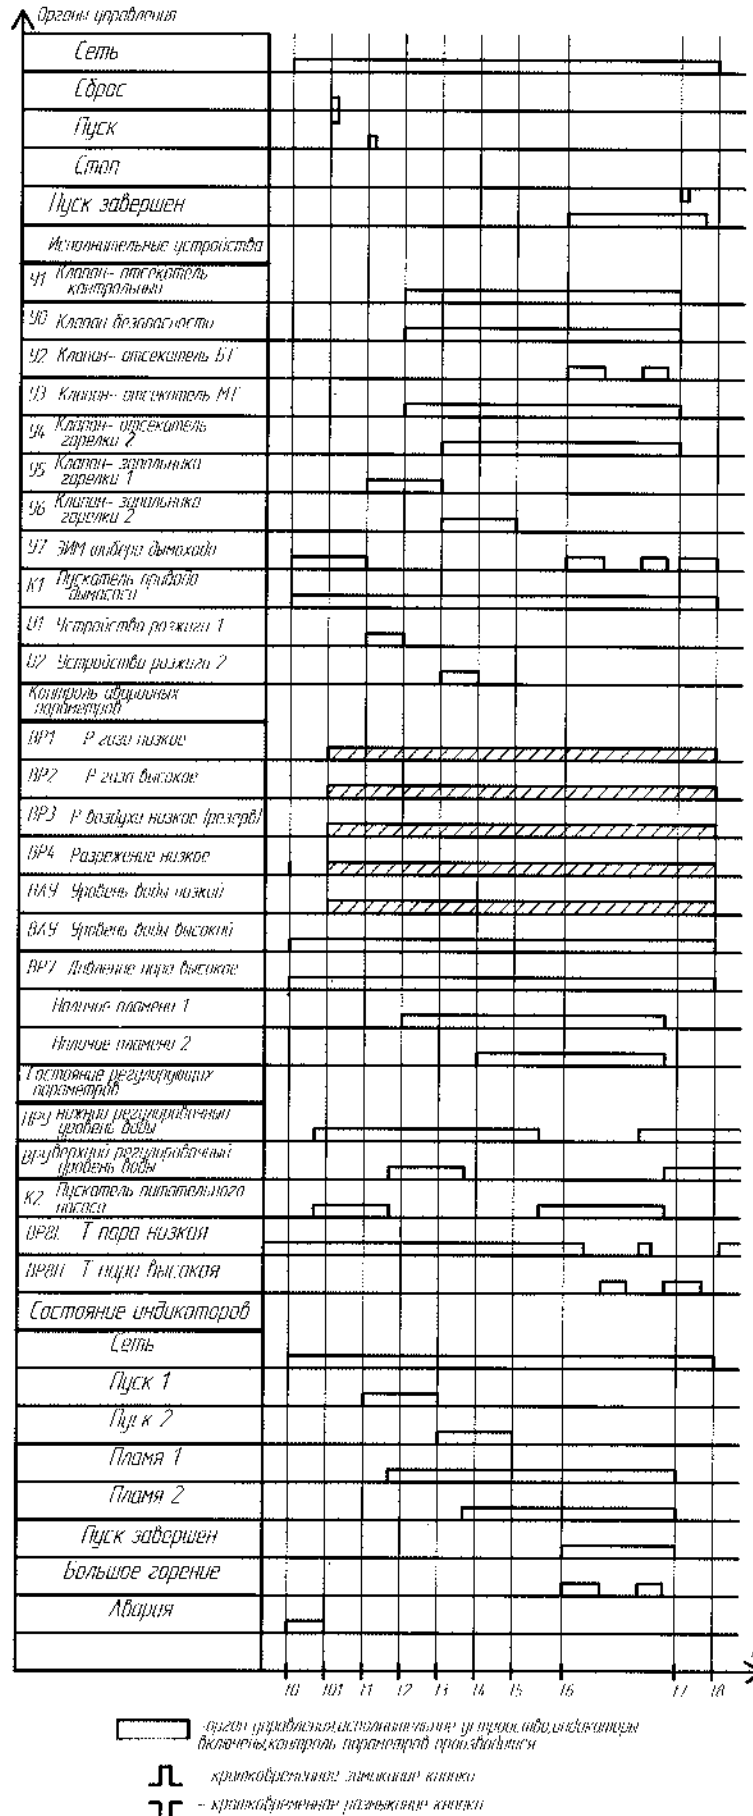 Органы управления
Сеть
Сброс
Пуск
Стоп
Пуск завершен
Исполнительные устройства
У1 Клапан- отсекатель
контрольный
У0 Клапан безопасности
У2 Клапан- отсекатель БГ
У3 Клапан- отсекатель МГ
У4 Клапан- отсекатель
горелки 2
У5 Клапан- запальника
горелки 1
У6 Клапан- запальника
горелки 2
У7 ЭИМ шибера дымохода
К1 Пускатель привода
дымососа
U1 Устройство розжига 1
U2 Устройство розжига 2
Контроль аварийных
параметров
ВР1 Р газа низкое
ВР2 Р газа высокое
ВР3 Р воздуха низкое (резерв)
ВР4 Разрежение низкое
НАУ Уровень воды низкий
ВАУ Уровень воды высокий
ВР7 Давление пара высокое
Наличие пламени 1
Наличие пламени 2
Состояние регулирующих
параметров
НРУ нижний регулировочный
уровень воды
ВРУ верхний регулировочный
уровень воды
К2 Пускатель питательного
насоса
Т пара низкая
Т пара высокая
Состояние индикаторов
Сеть
Пуск 1
Пуск 2
Пламя 1
Пламя 2
Пуск завершен
Большое горение
Авария
t0 t01 t1 t2 t3 t4 t5 t6 t7 t8
-орган управления,исполнительное устройство,индикаторы
включены,контроль параметров производится
- кратковременное замыкание кнопки
- кратковременное размыкание кнопки